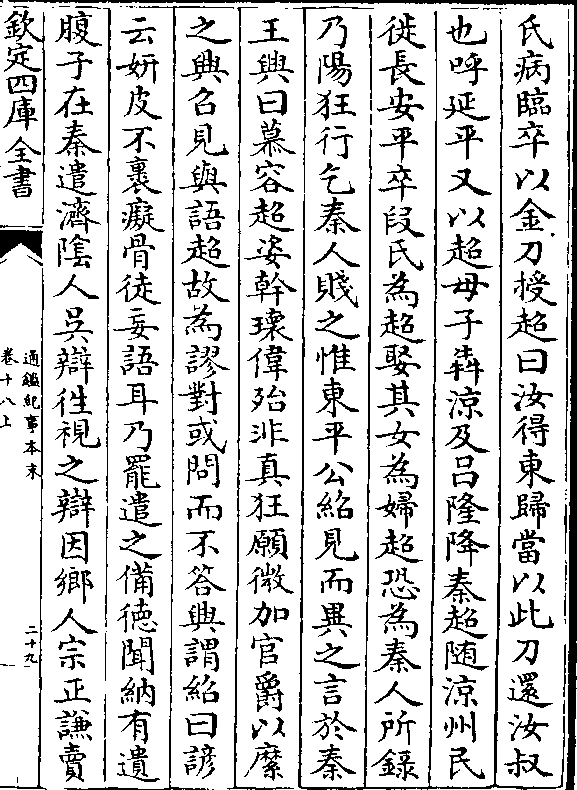 氏病臨卒以金刀授超曰汝得東歸當以此刀還汝叔
也呼延平又以超母子犇涼及吕隆降秦超随涼州民
徙長安平卒段氏為超娶其女為婦超恐為秦人所錄
乃陽狂行乞秦人賤之惟東平公紹見而異之言於秦
王興曰慕容超姿幹瓌偉殆非真狂願微加官爵以縻
之興召見與語超故為謬對或問而不答興謂紹曰諺
云妍皮不裹癡骨徒妄語耳乃罷遣之備徳聞納有遺
腹子在秦遣濟隂人吳辯往視之辯因鄉人宗正謙賣
欽定四庫全書
通鑑紀事本末
卷十八上
二十九